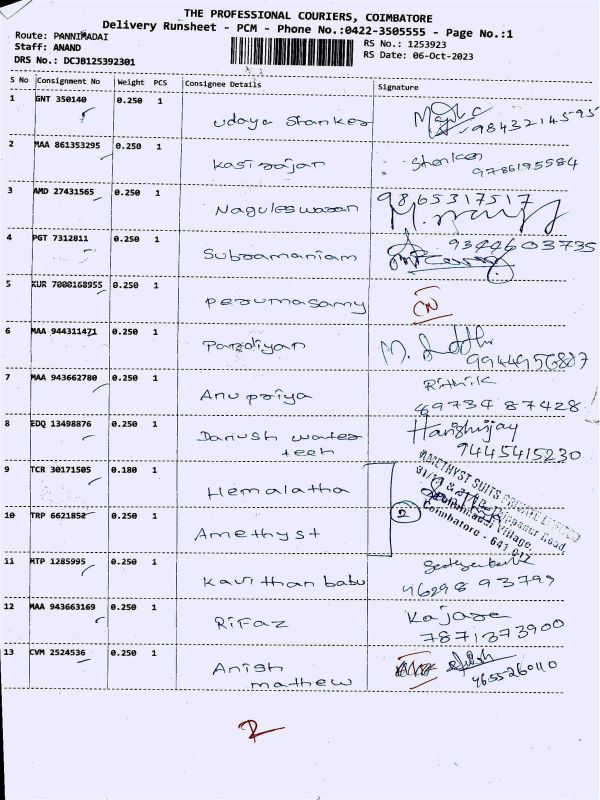 THE PROFESSIONAL COURIERS, COIMBATORE
Delivery Runsheet - PCM - Phone No.:0422-3505555 - Page No.:1
Route: PANNIMADAI
Staff: ANAND
DRS No.: DCJB125392301
RS No.: 1253923
RS Date: 06-Oct-2023
S No Consignment No Weight PCS Consignee Details Signature
1 GNT 350140 0.250 1 Udaya Shanker 9843214595
2 MAA 861353295 0.250 1 Kasirajan Shenkar 9786195584
3 AMD 27431565 0.250 1 Naguleswaran 9865317517
4 PGT 7312811 0.250 1 Subramaniam 9344603735
5 KUR 7000168955 0.250 1 Perumasamy CN
6 MAA 944311471 0.250 1 Pandiyan M. 9944956807
7 MAA 943662780 0.250 1 Anupriya Rithik
89734 87428
8 EDQ 13498876 0.250 1 Danush water
tech
Harishijay
9445415230
9 TCR 30171505 0.180 1 Hemalatha
10 TRP 6621852 0.250 1 Amethyst
2
AMETHYST SUITS PRIVATE LIMITED
Road,
Village,
Coimbatore - 641 017
11 MTP 1285995 0.250 1 Kavithan babu
96298 93799
12 MAA 943663169 0.250 1 Rifaz Kajase
7871373900
13 CVM 2524536 0.250 1 Anish
mathew
9655260110
R